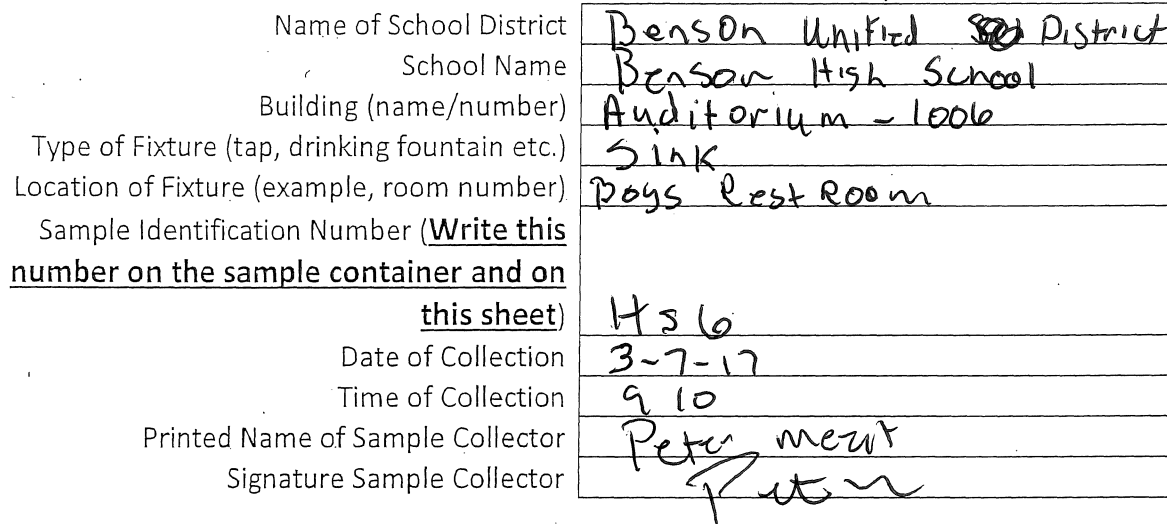 Name of School District Benson Unified District
School Name Benson High School
Building (name/number) Auditorium - 1006
Type of Fixture (tap, drinking fountain etc.) Sink
Location of Fixture (example, room number) Boys Rest Room
Sample Identification Number (Write this
number on the sample container and on
this sheet) HS6
Date of Collection 3-7-17
Time of Collection 9 10
Printed Name of Sample Collector Peter
Signature Sample Collector